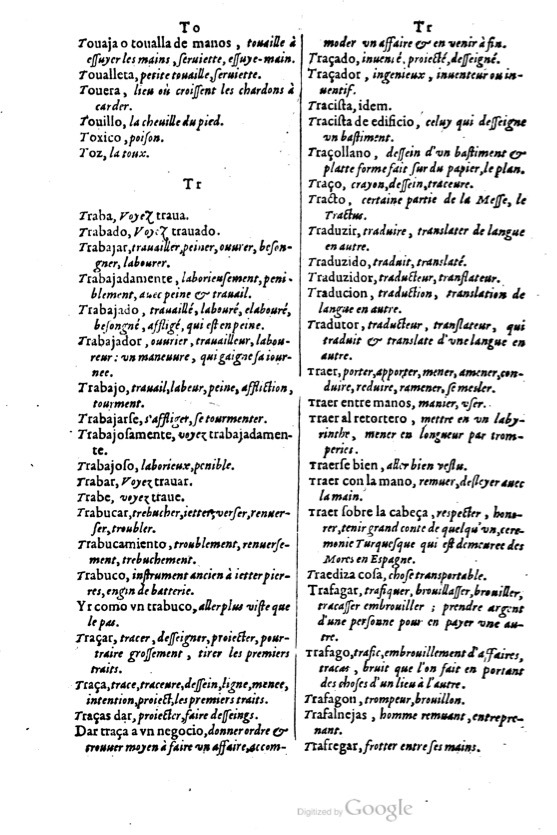 To
Touaja o toualla de manos, touaille à
essuyer les mains, seruiette, essuye-main.
Toualleta, petite touaille, seruiette.
Touera, lieu où croissent les chardons à
carder.
Touillo, la cheuille du pied.
Toxico, poison.
Toz, la toux.
Tr
Traba, Voyez traua.
Trabado, Voyez trauado.
Trabajar, trauailler, peiner, ouurer, beson-
gner, labourer.
Trabajadamente, laborieusement, peni-
blement, auec peine & trauail.
Trabajado, trauaillé, labouré, elabouré,
besongné, affligé, qui est en peine.
Trabajador, ouurier, trauailleur, labou-
reur : vn maneuure, qui gaigne sa iour-
nee.
Trabajo, trauail, labeur, peine, affliction,
tourment.
Trabajarse, s'affliger, se tourmenter.
Trabajosamente, voyez trabajadamen-
te.
Trabajoso, laborieux, penible.
Trabar, Voyez trauar.
Trabe, voyez traue.
Trabucar, trebucher, ietter, verser, renuer-
ser, troubler.
Trabucamiento, troublement, renuerse-
ment, trebuchement.
Trabuco, instrument ancien à ietter pier-
res, engin de batterie.
Yr como vn trabuco, aller plus viste que
le pas.
Traçar, tracer, desseigner, proiecter, pour-
traire grossement, tirer les premiers
traits.
Traça, trace, traceure, dessein, ligne, menee,
intention, proiect, les premiers traits.
Traças dar, proiecter, faire desseings.
Dar traça a vn negocio, donner ordre &
trouuer moyen à faire vn affaire, accom-
Tr
moder vn affaire & en venir à fin.
Traçado, inuenté, proiecté, desseigné.
Traçador, ingenieux, inuenteur ou in-
uentif.
Tracista, idem.
Tracista de edificio, celuy qui desseigne
vn bastiment.
Traçollano, dessein d'vn bastiment &
platte forme fait sur du papier, le plan.
Traço, crayon, dessein, traceure.
Tracto, certaine partie de la Messe, le
Tractus.
Traduzir, traduire, translater de langue
en autre.
Traduzido, traduit, translaté.
Traduzidor, traducteur, translateur.
Traducion, traduction, translation de
langue en autre.
Tradutor, traducteur, translateur, qui
traduit & translate d'vne langue en
autre.
Traer, porter, apporter, mener, amener, con-
duire, reduire, ramener, se mesler.
Traer entre manos, manier, vser.
Traer al retortero, mettre en vn laby-
rinthe, mener en longueur par trom-
peries.
Traerse bien, aller bien vestu.
Traer con la mano, remuer, desleyer auec
la main.
Traer sobre la cabeça, respecter, hono-
rer, tenir grand conte de quelqu'vn, cere-
monie Turquesque qui est demeuree des
Mores en Espagne.
Traediza cosa, chose transportable.
Trafagar, trafiquer, brouillasser, brouiller,
tracasser embrouiller ; prendre argent
d'une personne pour en payer vne au-
tre.
Trafago, trafic, embrouillement d'affaires,
tracas, bruit que l'on fait en portant
des choses d'un lieu à l'autre.
Trafagon, trompeur, brouillon.
Trafalnejas, homme remuant, entrepre-
nant.
Trafregar, frotter entre ses mains.
Digitized by Google